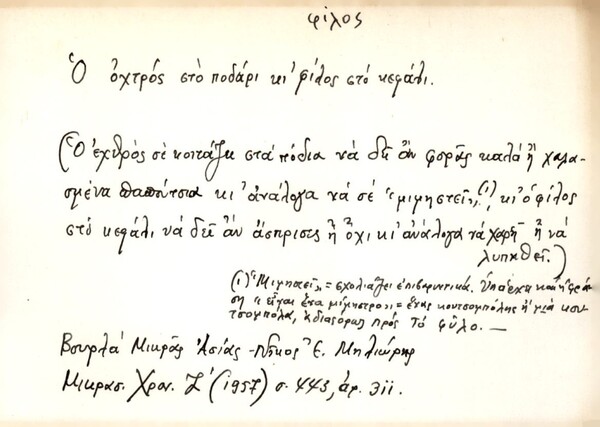 φίλος
Ὁ ὀχτρός στὸ ποδάρι κι' φίλος στό κεφάλι.
(Ὁ ἐχθρὸς σὲ κοιτάζει στά πόδια νὰ δεῖ ἂν φορᾶς καλὰ ἢ χαλα-
σμένα παπούτσια κι' ἀνάλογα νά σέ "μιμηστεῖ",(1) κι' ὁ φίλος
στό κεφάλι νὰ δεῖ ἂν ἄσπρισες ἢ ὄχι κι' ἀνάλογα νά χαρῆ ἢ νά
λυπηθεῖ.)
(1) "Μιμηστεῖ" = σχολιάζει ἐπιβαρυντικά. Ὑπάρχει καὶ ἡ φρά-
ση "εἶναι ἕνα μίμηστρο" = ἕνας κουτσομπόλης ἢ μιά κου-
τσομπόλα, ἀδιαφόρως πρός τό φύλο. —
Βουρλά Μικρᾶς Ἀσίας - Νῖκος Ἐ. Μηλιώρης
Μικρασ. Χρον. Ζ' (1957) σ. 443, ἀρ. 311.